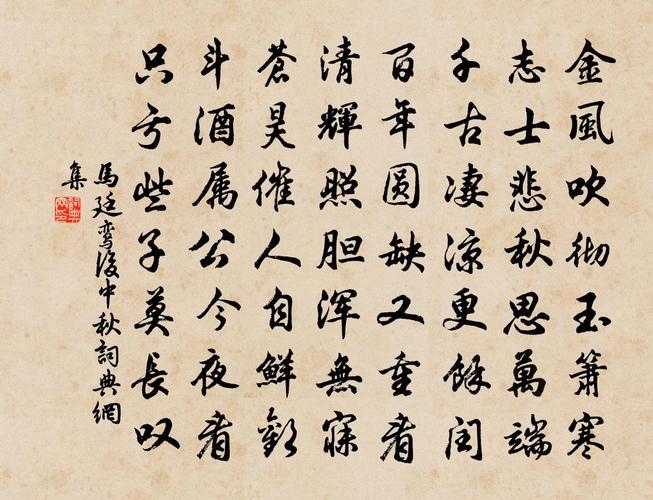 金風吹彻玉簫寒
志士悲秋思萬端
千古凄涼更餘閏
百年圆缺又重看
清輝照胆浑無寐
蒼昊催人自鮮歡
斗酒属公今夜看
只亏些子莫長叹
馬廷鸾後中秋詞典網
集